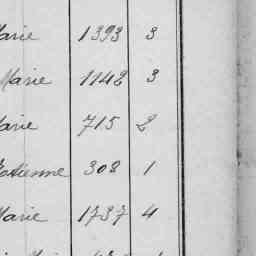 Marie 1393 3
Marie 1142 3
Marie 715 2
Estienne 308 1
Marie 1737 4